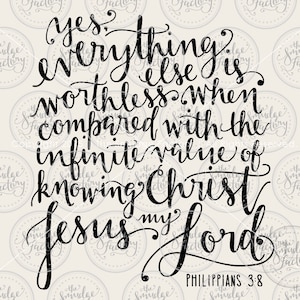 yes,
everything
else is
worthless when
compared with the
infinite value of
knowing Christ
Jesus my Lord
PHILIPPIANS 3:8
the Smudge Factory